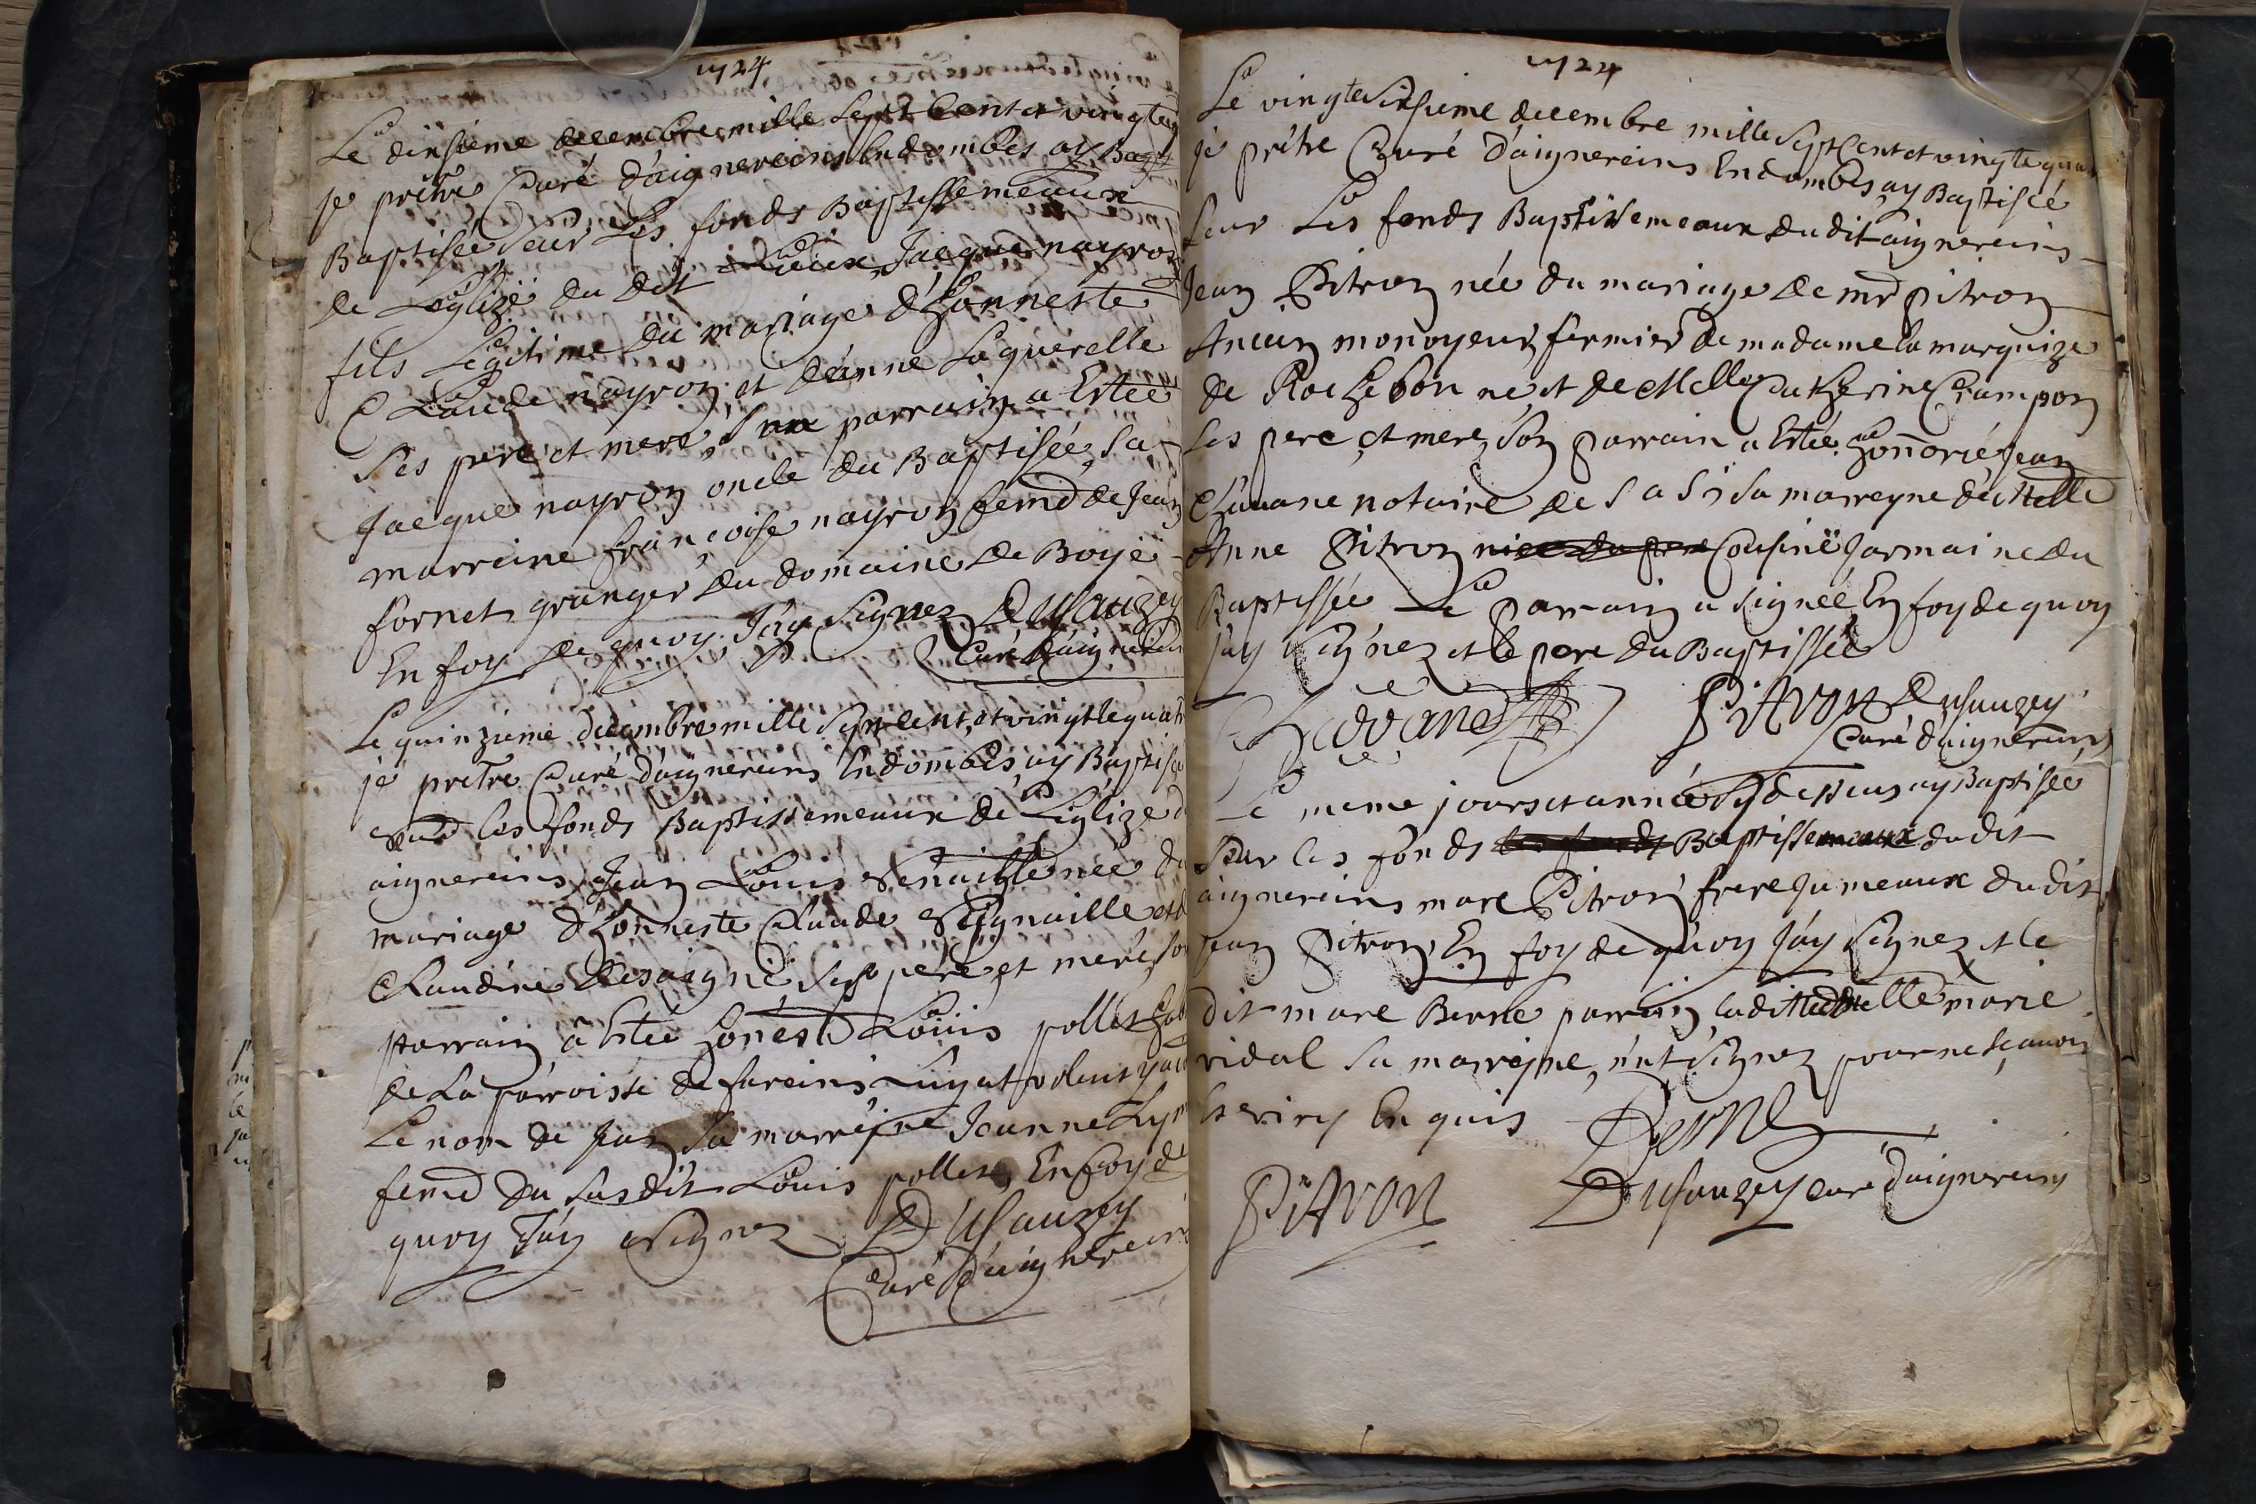 1724
Le dixsieme decembre mille sept cent et vingte
je prétre Curé d'aignereins Endombes ay
Baptisée sur Les fonds Baptissemeaux
de Léglize du dit Lieux, Jacque nayron
fils Legitime du mariage d'honneste
Claude nayron et deanne Laquerelle
ses pere et mere, son parrain a Estée
Jacque nayron oncle du Baptisée, sa
marreine françoise nayron feme de Jean
fornet granger du domaine de Boyë
En foy de quoy J'ay Signez Dusauzey
Curé d'aignereins
Le quinzieme decembre mille sept cent, et vingte quatre
je pretre Curé d'aignereins Endombes, ay Baptisée
sur les fonds Baptissemeaux de L'églize d
aignereins Jean Louis Senaille née du
mariage d'honneste Claude Seignaille et d
Claudine desaigne ses pere et mere, son
parrain a Estée honest Louis pollet
de La parroisse de fareins Luy at volus
Le nom de Jean sa marreyne Jeanne
feme du susdit Louis pollet, En foy de
quoy J'ay Signez Dusauzey
Curé d'aignereins
1724
Le vingte sixsieme decembre mille sept cent et vingte quatre
je prétre Curé d'aignereins Endombes, ay Baptisée
sur Les fonds Baptissemeaux du dit aignereins
Jean Pitron née du mariage de mr pitron
Ancien monoyeur, fermier de madame la marquize
de Rochebonne, et de Melle Catherine Crampon
ses pere et mere, son parrain a Estée honorié Jean
Chavane notaire de S a S, sa marreyne d'elle
Anne Pitron niece du pere Cousine Jarmaine du
Baptissée Le parrain a signéé En foy de quoy
j'ay signez et le pere du Baptissée
Chavane Pitron Dusauzey
Curé d'aignereins
Le meme jours et année sy dessus ay Baptisée
sur les fonds les fonds Baptissemeaux du dit
aignereins marc Pitron frere jumeaux du dit
Jean Pitron, En foy de quoy J'ay Signez, et le
dit marc Berne parrain, la dite Delle marie
vidal sa marreyne, n'ut signez pour ne sçavoir
Enquis Berne
Pitron Dusauzey Curé d'aignereins